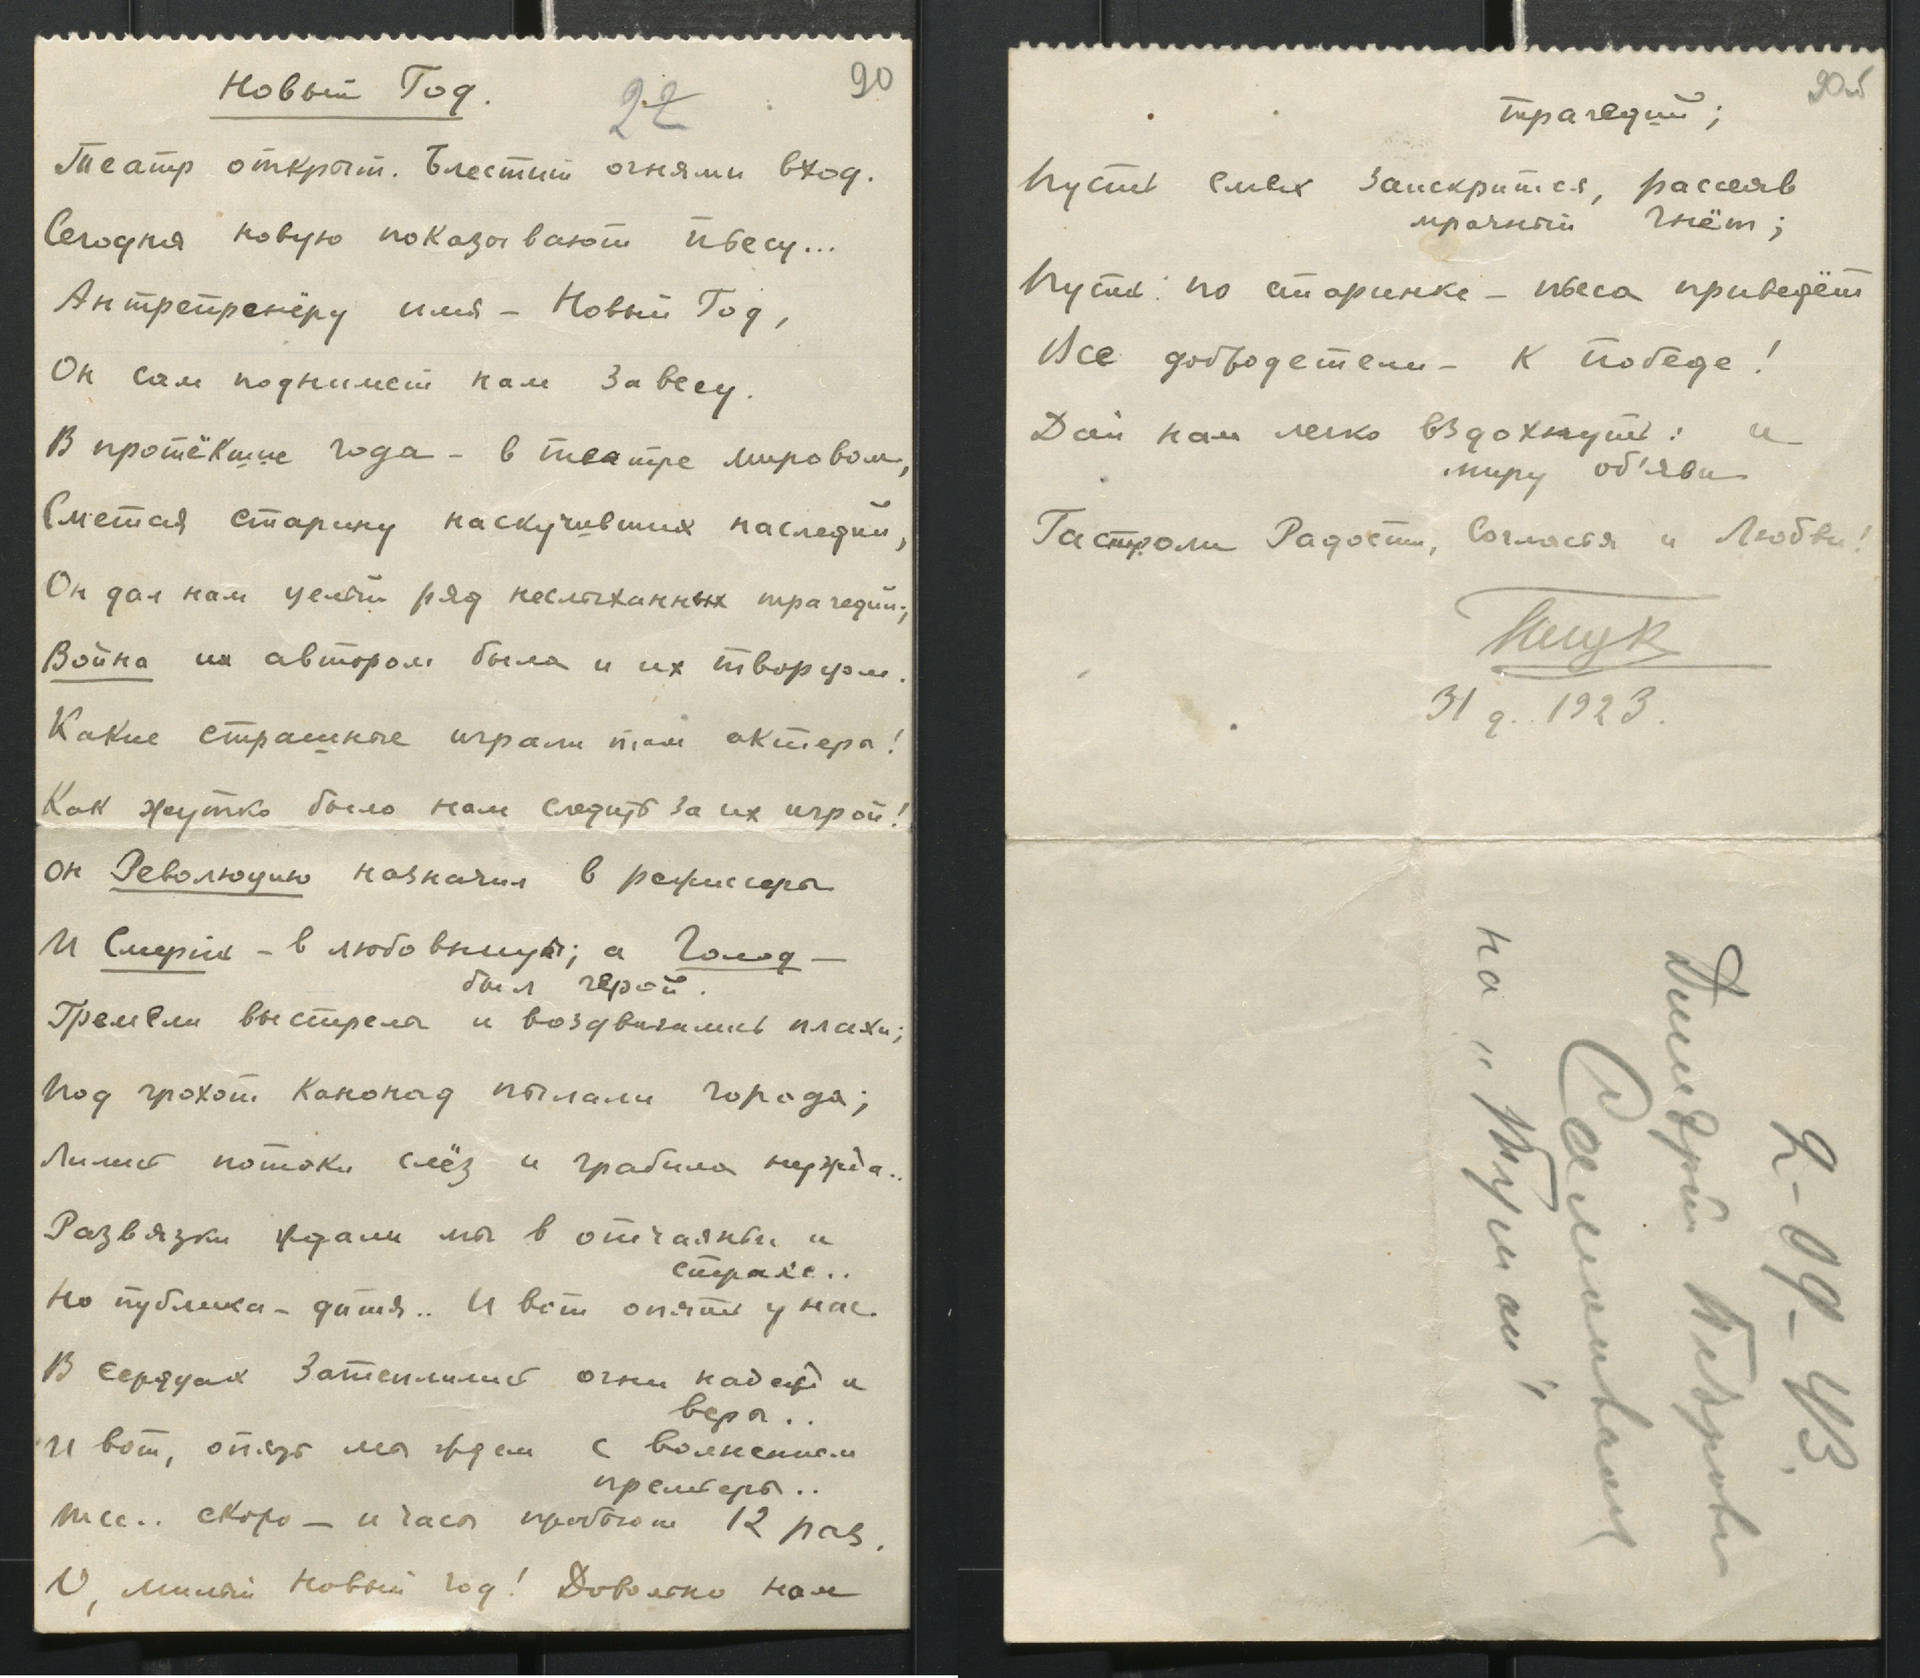 Новый Год.
22
90
Театр открыт. Блестит огнями вход.
Сегодня новую показывают пьесу...
Антрепренёру имя – Новый Год,
Он сам поднимет нам завесу.
В протёкшие года – в театре мировом,
Сметая старину наскучивших наследий,
Он дал нам целый ряд неслыханных трагедий;
Война их автором была и их творцом.
Какие страшные играли там актеры!
Как жутко было нам следить за их игрой!
Он Революцию назначил в режиссеры
И Смерть – в любовницы; а Голод –
был герой.
Гремели выстрелы и воздвигались плахи;
Под грохот канонад пылали города;
Лились потоки слёз и грабила нужда..
Развязки ждали мы в отчаяньи и
страхе..
Но публика – дитя.. И вот опять у нас
В сердцах затеплились огни надежд и
веры..
И вот, опять мы ждем с волнением
премьеры..
Тсс.. скоро – и часы пробьют 12 раз.
О, милый Новый год! Довольно нам
90об
трагедий;
Пусть смех заискрится, рассеяв
мрачный гнёт;
Пусть по старинке – пьеса приведёт
Все добродетели – к победе!
Дай нам легко вздохнуть: и
миру об'яви
Гастроли Радости, Согласья и Любви!
31 д. 1923.
2-09-43.
Дмитрий Петрович
на "